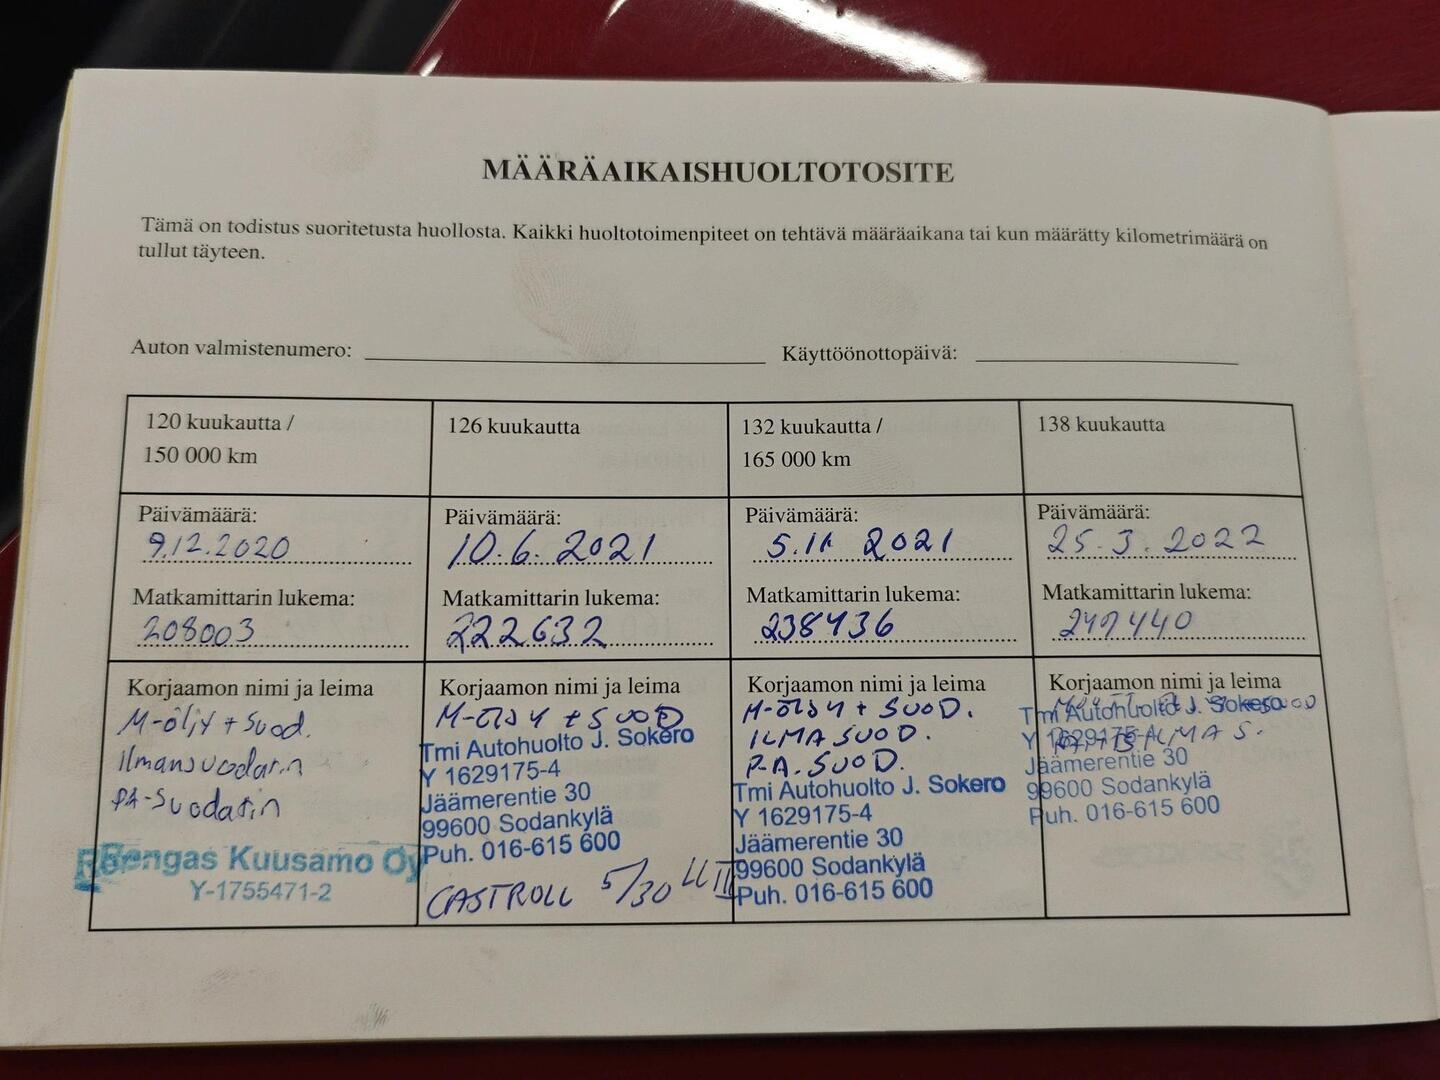 MÄÄRÄAIKAISHUOLTOTOSITE
Tämä on todistus suoritetusta huollosta. Kaikki huoltotoimenpiteet on tehtävä määräaikana tai kun määrätty kilometrimäärä on
tullut täyteen.
Auton valmistenumero:
Käyttöönottopäivä:
120 kuukautta /
150 000 km
Päivämäärä:
9.12.2020
Matkamittarin lukema:
208003
Korjaamon nimi ja leima
M-öljy + Suod.
Ilmansuodatin
PA-Suodatin
Rengas Kuusamo Oy
Y-1755471-2
126 kuukautta
Päivämäärä:
10.6.2021
Matkamittarin lukema:
222632
Korjaamon nimi ja leima
M-ÖLJY + SUOD
Tmi Autohuolto J. Sokero
Y 1629175-4
Jäämerentie 30
99600 Sodankylä
Puh. 016-615 600
CASTROLL 5/30 LL III
132 kuukautta /
165 000 km
Päivämäärä:
5.11 2021
Matkamittarin lukema:
238436
Korjaamon nimi ja leima
M-ÖLJY + SUOD.
ILMA SUOD.
P-A. SUOD.
Tmi Autohuolto J. Sokero
Y 1629175-4
Jäämerentie 30
99600 Sodankylä
Puh. 016-615 600
138 kuukautta
Päivämäärä:
25.3.2022
Matkamittarin lukema:
Korjaamon nimi ja leima
Tmi Autohuolto J. Sokero
Y 1629175-4
ILMA S.
Jäämerentie 30
99600 Sodankylä
Puh. 016-615 600